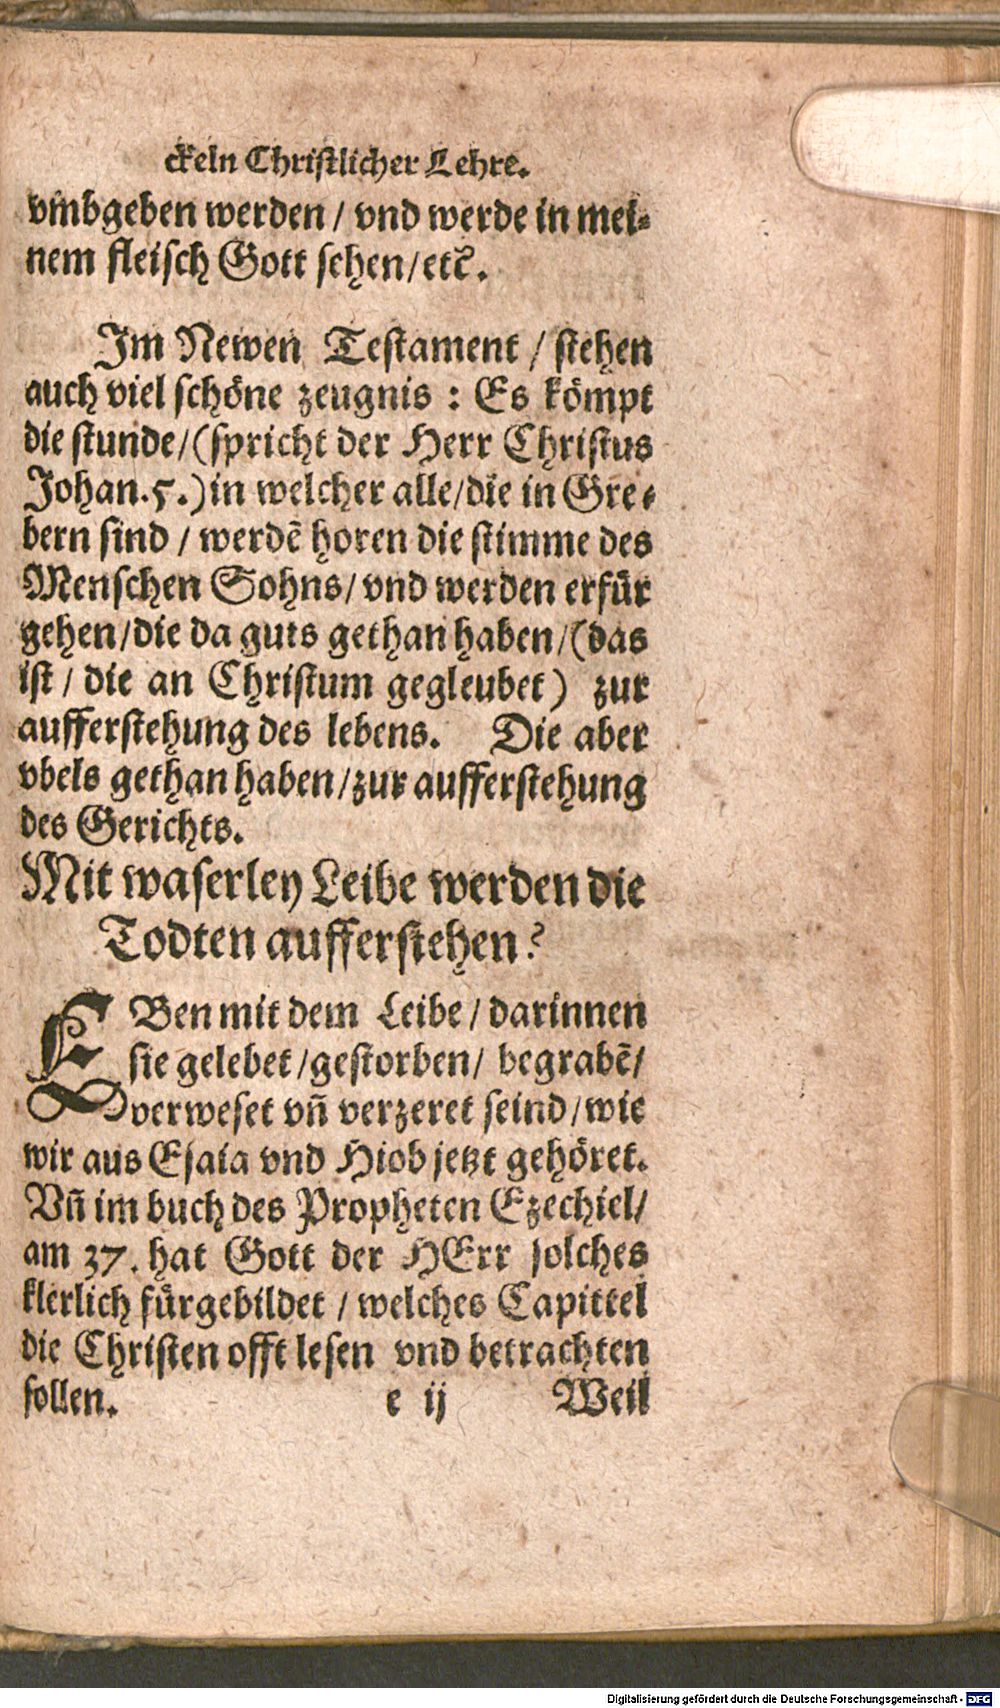 ckeln Christlicher Lehre.
vmbgeben werden / vnd werde in mei-
nem fleisch Gott sehen/etc̃.
Im Newen Testament / stehen
auch viel schöne zeugnis : Es kömpt
die stunde/(spricht der Herr Christus
Johan.5.)in welcher alle/die in Gre-
bern sind / werdẽ horen die stimme des
Menschen Sohns/ vnd werden erfür
gehen/die da guts gethan haben/(das
ist / die an Christum gegleubet) zur
aufferstehung des lebens. Die aber
vbels gethan haben/zur aufferstehung
des Gerichts.
Mit waserley Leibe werden die
Todten aufferstehen?
EBen mit dem Leibe/ darinnen
sie gelebet/gestorben/ begrabẽ/
verweset vñ verzeret seind/wie
wir aus Esaia vnd Hiob jetzt gehöret.
Vñ im buch des Propheten Ezechiel/
am 37. hat Gott der HErr solches
klerlich fürgebildet / welches Capittel
die Christen offt lesen vnd betrachten
sollen. e ij Weil
Digitalisierung gefördert durch die Deutsche Forschungsgemeinschaft - DFG